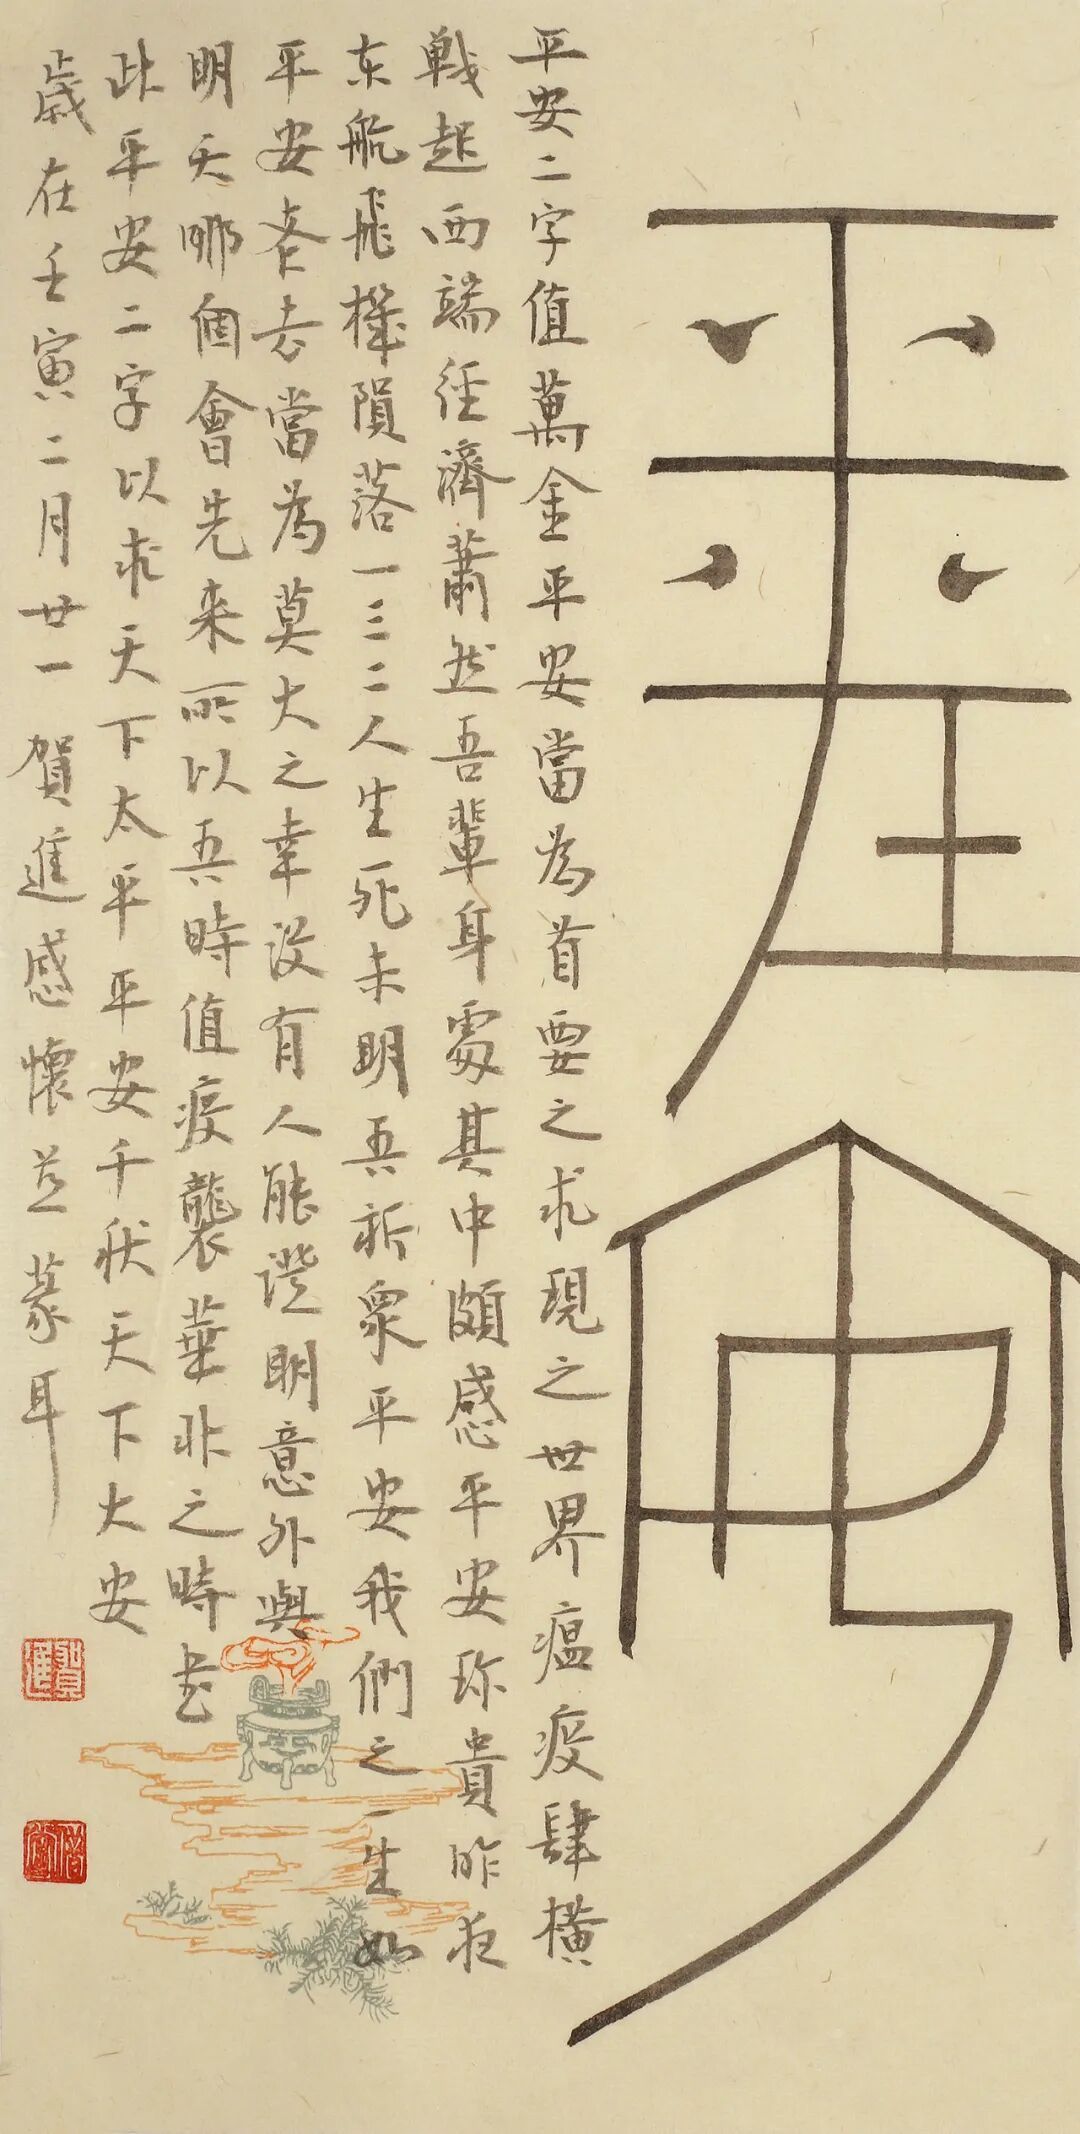 平安
平安二字值萬金平安當為首要之求現之世界瘟疫肆橫
戰起西端径濟蕭然吾輩身處其中頗感平安珎貴昨夜
东航飛機隕落一三二人生死未明吾祈衆平安我們之一生如
平安老去當為莫大之幸没有人能證明意外與
明天哪個會先来所以吾時值疫襲華非之時书
此平安二字以求天下太平平安千秋天下大安
歲在壬寅二月廿一賀進感懷並篆耳
賀進